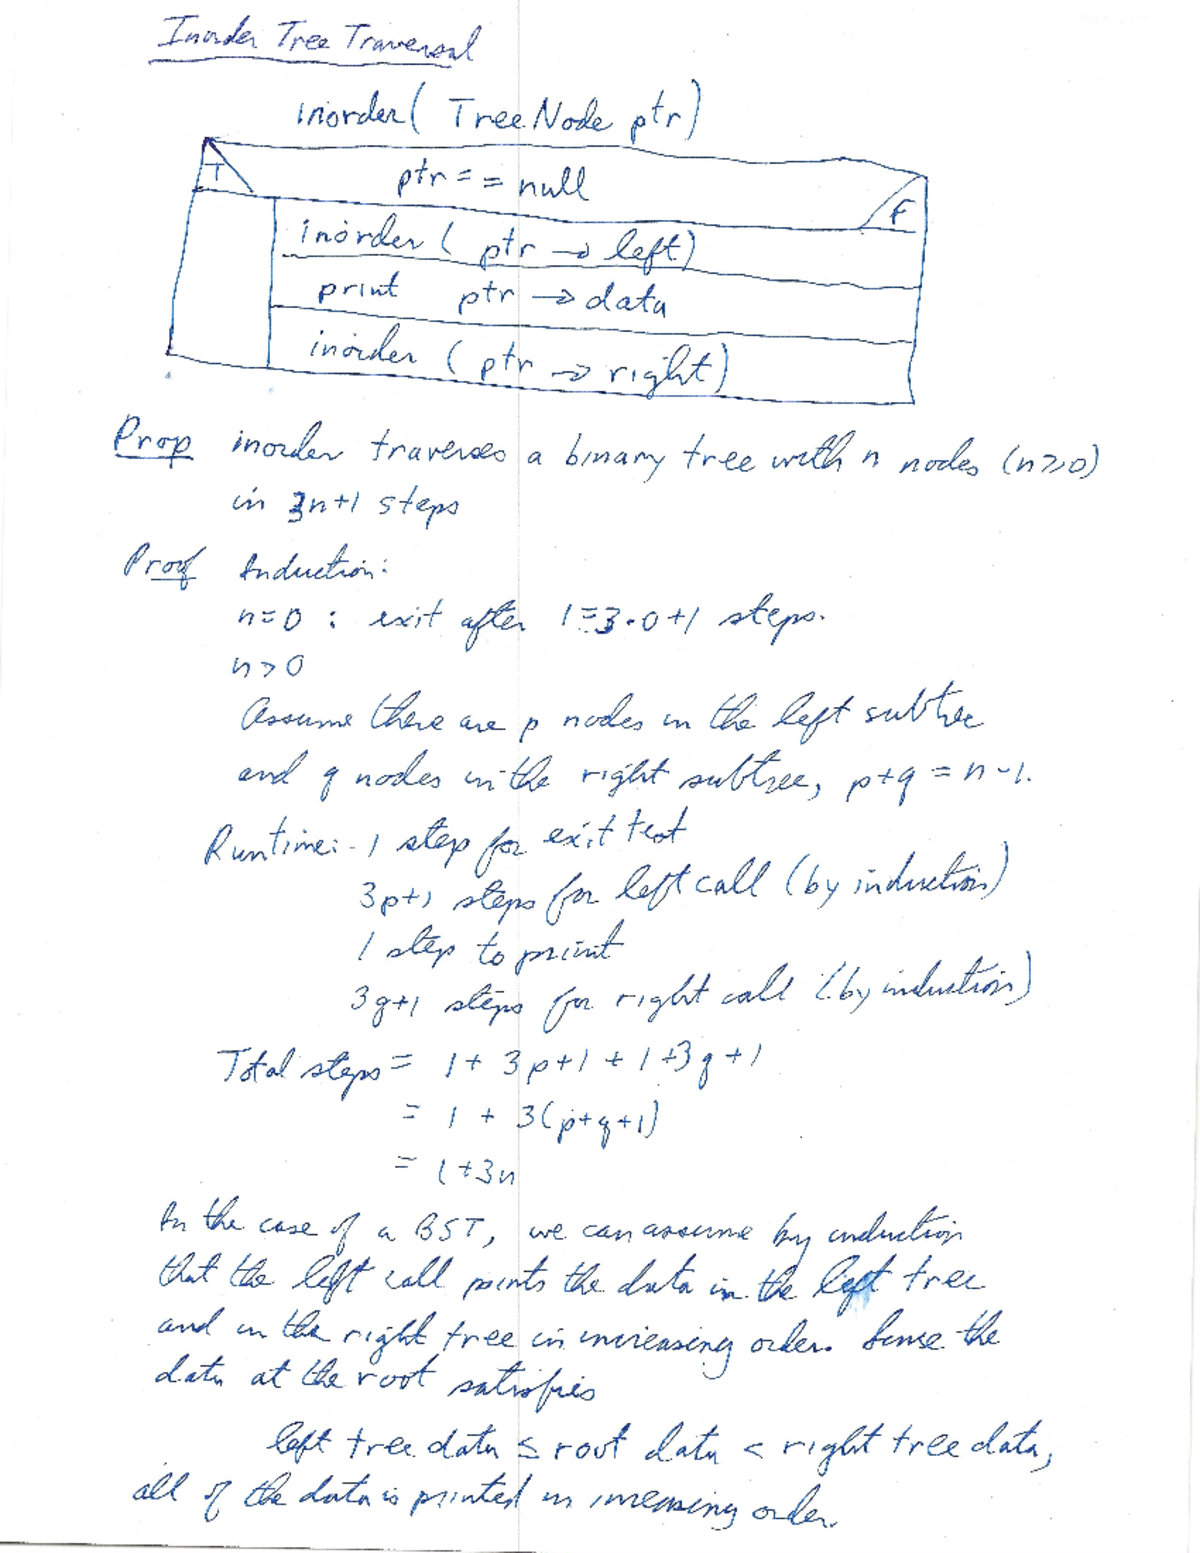 Inorder Tree Traversal
inorder( TreeNode ptr)
T ptr == null F
inorder ( ptr → left)
print ptr → data
inorder ( ptr → right)
Prop inorder traverses a binary tree with n nodes (n≥0)
in 3n+1 steps
Proof Induction:
n=0 : exit after 1=3·0+1 steps.
n>0
Assume there are p nodes in the left subtree
and q nodes in the right subtree, p+q = n-1.
Runtime:- 1 step for exit test
3p+1 steps for left call (by induction)
1 step to print
3q+1 steps for right call (by induction)
Total steps = 1+ 3p+1 + 1+3q+1
= 1 + 3(p+q+1)
= 1+3n
In the case of a BST, we can assume by induction
that the left call prints the data in the left tree
and in the right tree in increasing order. Since the
data at the root satisfies
left tree data ≤ root data < right tree data,
all of the data is printed in increasing order.